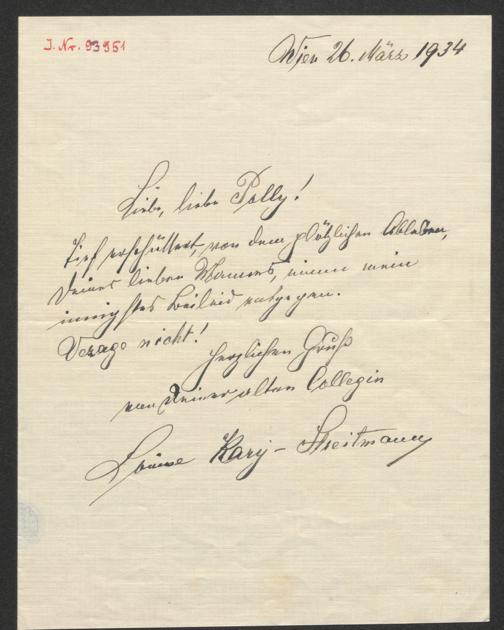 J. Nr. 93951
Wien 26. März 1934
Liebe, liebe Polly!
Tief erschüttert, von dem plötzlichen Ableben,
Deines lieben Mannes, nimm mein
innigstes Beileid entgegen.
Verzage nicht!
Herzlichen Gruß
von Deiner alten Collegin
Louise Kary-Streitmann